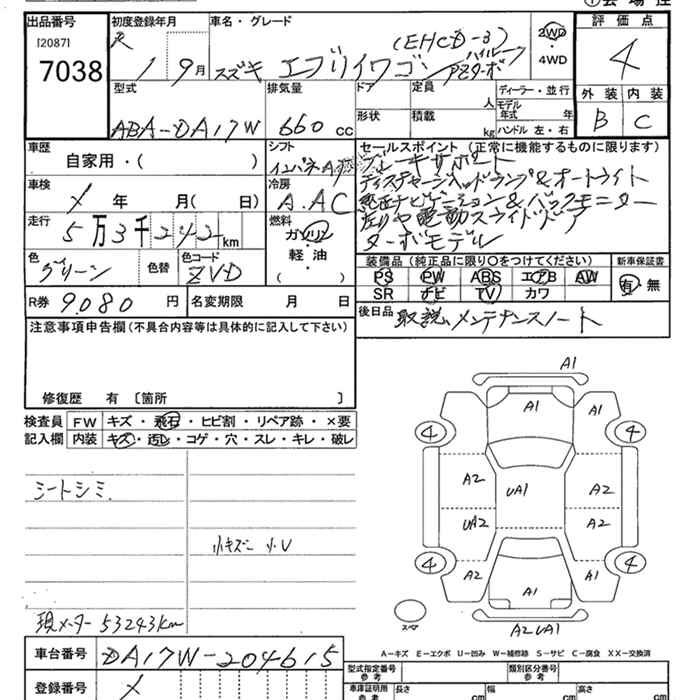 出品番号 初度登録年月 車名・グレード 評価点
[2087] 7038
1 9月 スズキ エブリイワゴン (EHCD-3) ハイルーフ PZターボ
2WD・4WD
4
型式 排気量 ドア 定員 人 ディーラー・並行 外装 内装
ABA-DA17W 660 cc
形状 積載 kg モデル年式 年
ハンドル 左・右
B C
車歴 シフト セールスポイント (正常に機能するものに限ります)
自家用・( ) インパネA
ブレーキサポート
ディスチャージヘッドランプ&オートライト
純正ナビゲーション&バックモニター
左右電動スライドドア
ターボモデル
車検 年 月( 日) 冷房 A.AC
走行 5万3千242km 燃料 ガソリン・軽油・( )
色 グリーン 色替 色コード ZVD
装備品 (純正品に限り○をつけてください) 新車保証書
PS PW ABS エアB AW
SR ナビ TV カワ
有・無
R券 9.080 円 名変期限 月 日
後日品 取説、メンテナンスノート
注意事項申告欄 (不具合内容等は具体的に記入して下さい)
修復歴 有 〔箇所 〕
検査員記入欄 FW キズ・飛石・ヒビ割・リペア跡・×要
内装 キズ・汚レ・コゲ・穴・スレ・キレ・破レ
シートシミ、
小キズ 小U
現メーター 53243km
A1
A1 A1
4 4
A2 UA1 A2
UA2 A2
4 4
A2 A1 A1
スペア
A2 UA1
A-キズ E-エクボ U-凹み W-補修跡 S-サビ C-腐食 XX-交換済
車台番号 DA17W-204615
登録番号
型式指定番号 参考 類別区分番号 参考
車庫証明用参考 長さ cm 幅 cm 高さ cm